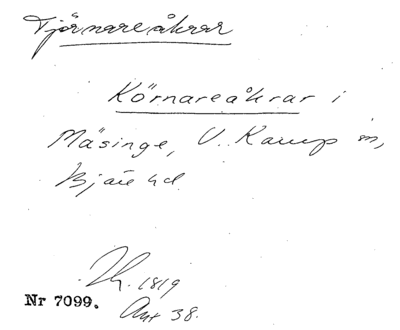 Tjörnareåkrar
Körnareåkrar i
Mäsinge, V. Karup sn,
Bjäre hd.
1819
Nr 7099.
Ant 38.